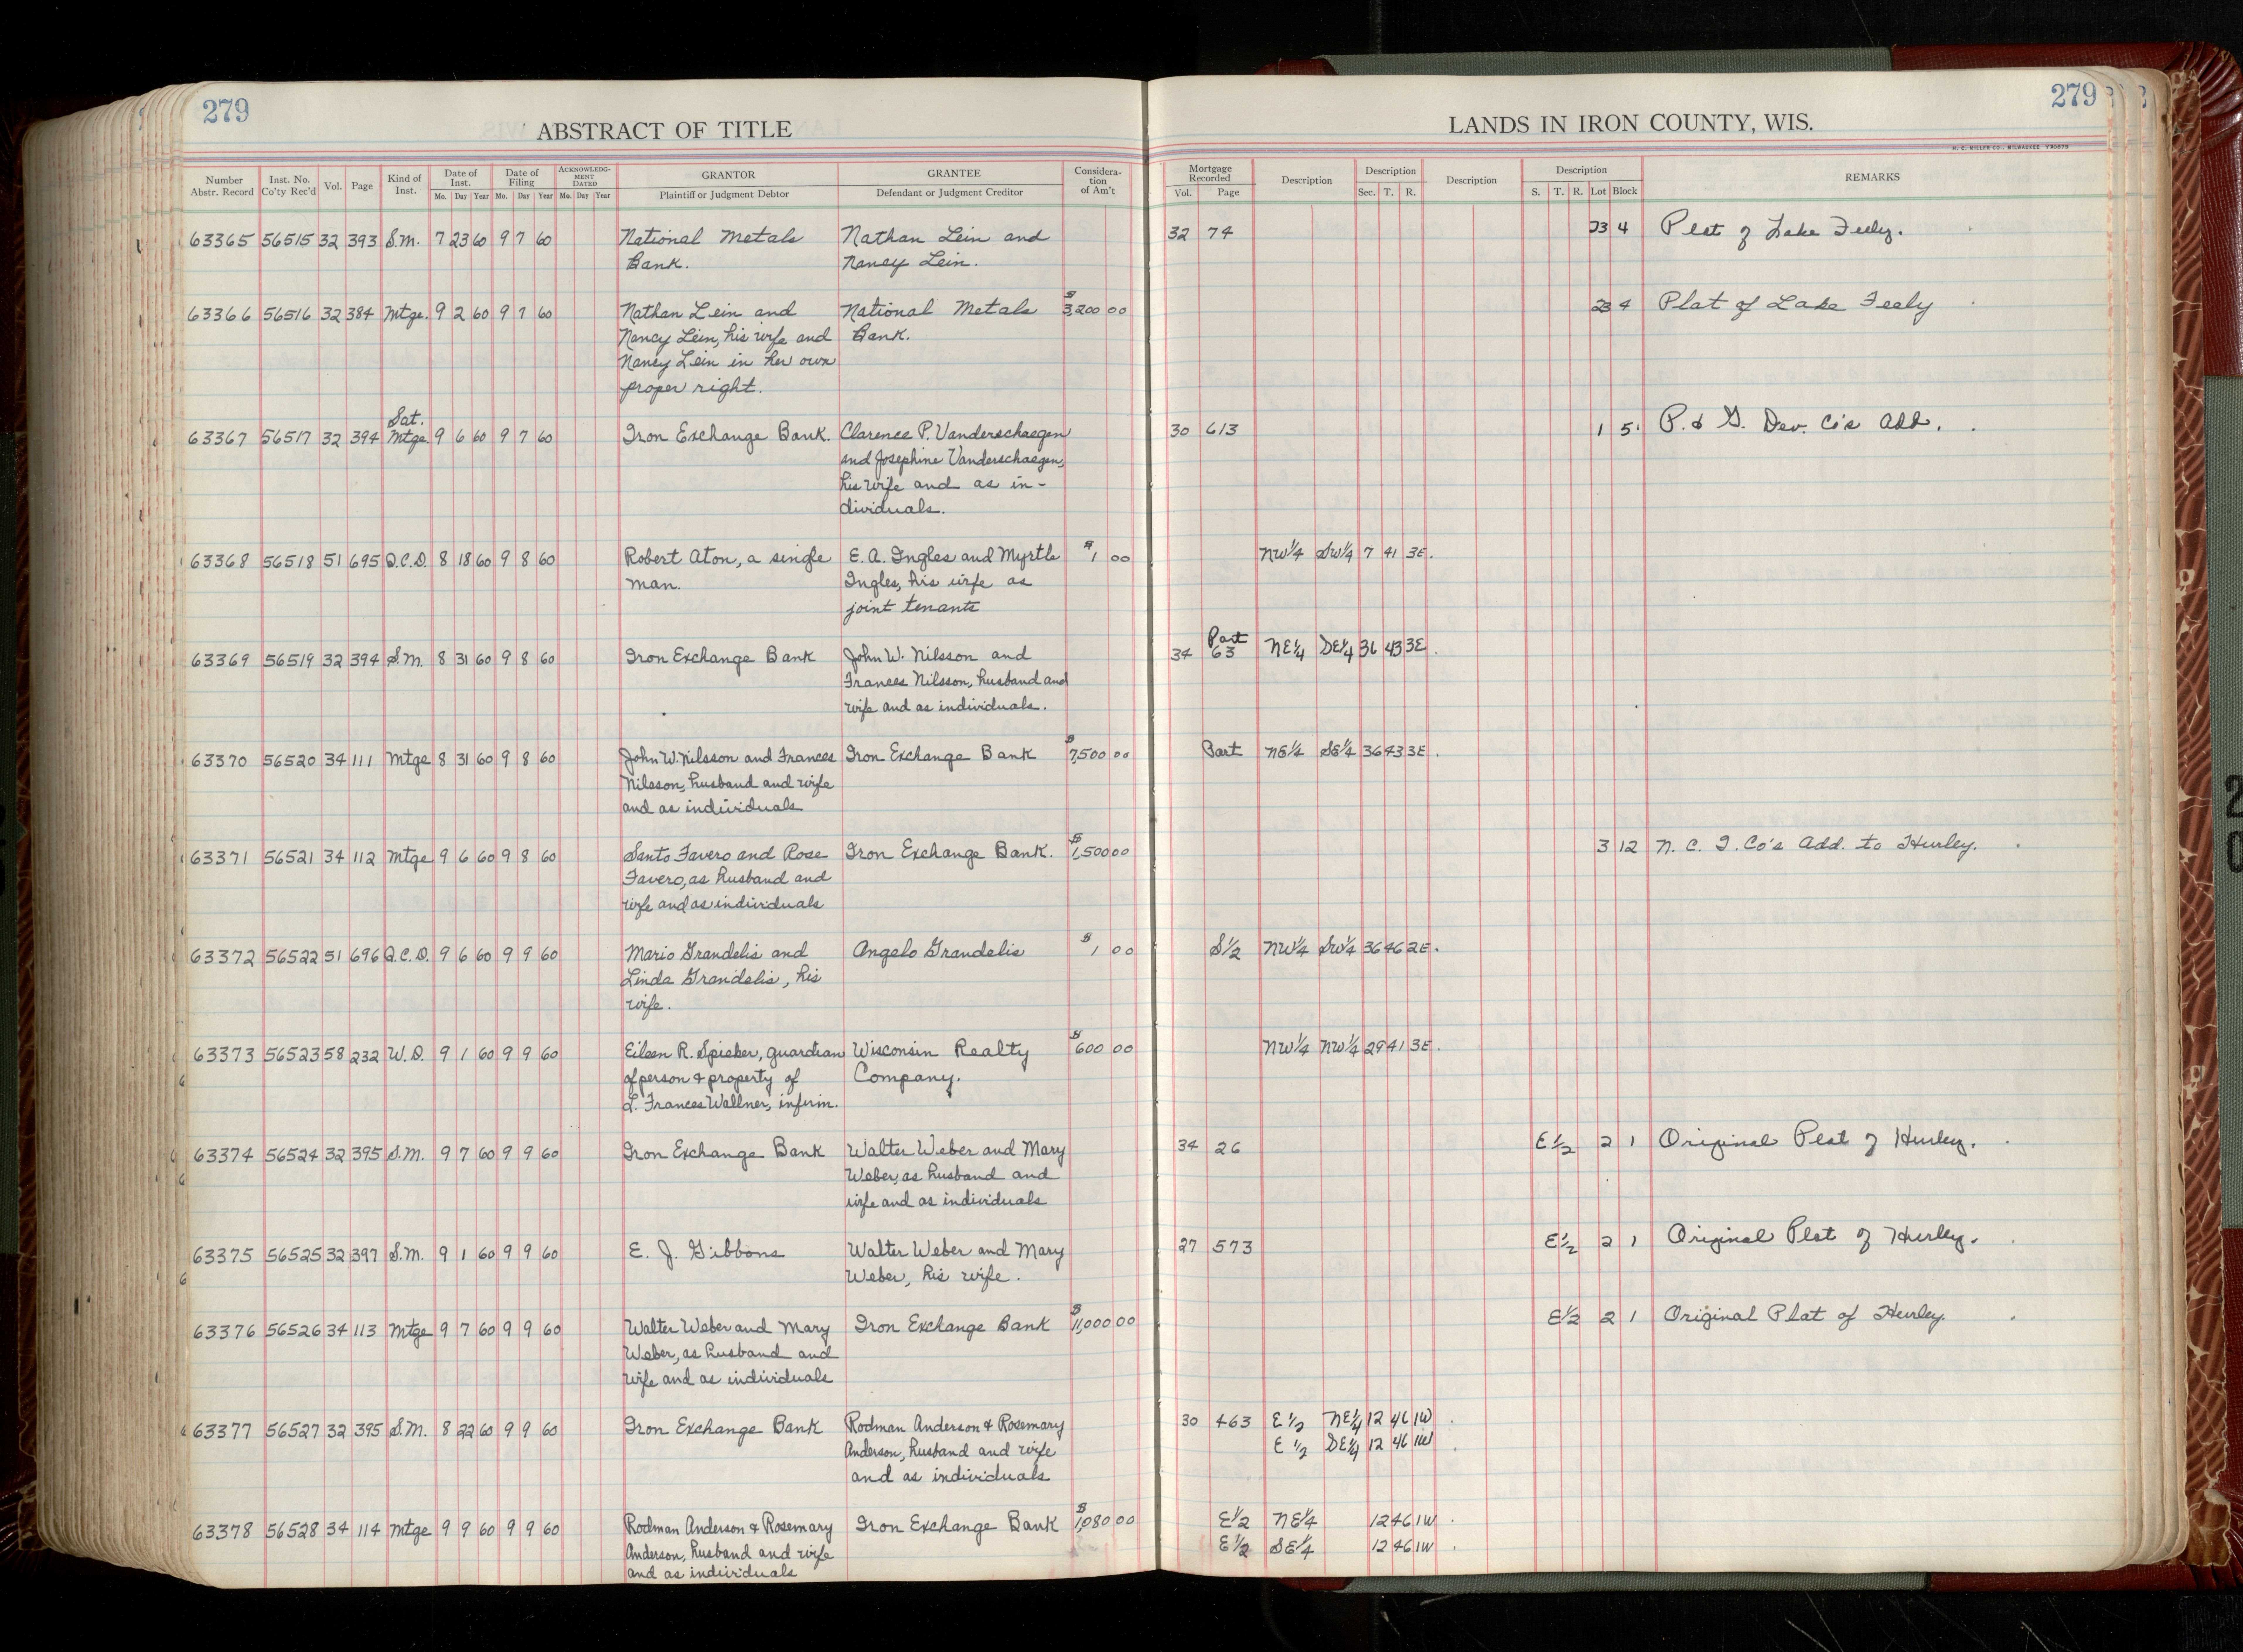 279
ABSTRACT OF TITLE
Number Abstr. Record | Inst. No. Co'ty Rec'd | Vol. | Page | Kind of Inst. | Date of Inst. Mo. Day Year | Date of Filing Mo. Day Year | ACKNOWLEDGMENT DATED Mo. Day Year | GRANTOR Plaintiff or Judgment Debtor | GRANTEE Defendant or Judgment Creditor | Consideration of Am't
63365 56515 32 393 S.M. 7 23 60 9 7 60 National Metals Nathan Lein and
Bank. Nancy Lein.
63366 56516 32 384 Mtge. 9 2 60 9 7 60 Nathan Lein and National Metals $3,200 00
Nancy Lein, his wife and Bank.
Nancy Lein in her own
proper right.
Sat.
63367 56517 32 394 Mtge. 9 6 60 9 7 60 Iron Exchange Bank. Clarence P. Vanderschaegen
and Josephine Vanderschaegen,
his wife and as in-
dividuals.
63368 56518 51 695 Q.C.D. 8 18 60 9 8 60 Robert Aton, a single E. A. Ingles and Myrtle $1 00
man. Ingles, his wife as
joint tenants
63369 56519 32 394 S.M. 8 31 60 9 8 60 Iron Exchange Bank John W. Nilsson and
Frances Nilsson, husband and
wife and as individuals.
63370 56520 34 111 Mtge 8 31 60 9 8 60 John W. Nilsson and Frances Iron Exchange Bank $7,500 00
Nilsson, husband and wife
and as individuals
63371 56521 34 112 Mtge 9 6 60 9 8 60 Santo Favero and Rose Iron Exchange Bank. $1,500 00
Favero, as husband and
wife and as individuals
63372 56522 51 696 Q.C.D. 9 6 60 9 9 60 Mario Grandelis and Angelo Grandelis $1 00
Linda Grandelis, his
wife.
63373 56523 58 232 W.D. 9 1 60 9 9 60 Eileen R. Spieker, guardian Wisconsin Realty $600 00
of person & property of Company.
L. Frances Wallner, infirm.
63374 56524 32 395 S.M. 9 7 60 9 9 60 Iron Exchange Bank Walter Weber and Mary
Weber, as husband and
wife and as individuals
63375 56525 32 397 S.M. 9 1 60 9 9 60 E. J. Gibbons Walter Weber and Mary
Weber, his wife.
63376 56526 34 113 Mtge 9 7 60 9 9 60 Walter Weber and Mary Iron Exchange Bank $11,000 00
Weber, as husband and
wife and as individuals
63377 56527 32 395 S.M. 8 22 60 9 9 60 Iron Exchange Bank Rodman Anderson & Rosemary
Anderson, husband and wife
and as individuals
63378 56528 34 114 Mtge 9 9 60 9 9 60 Rodman Anderson & Rosemary Iron Exchange Bank $1,080 00
Anderson, husband and wife
and as individuals
279
LANDS IN IRON COUNTY, WIS.
H. C. MILLER CO., MILWAUKEE
Mortgage Recorded Vol. Page | Description | Description Sec. T. R. | Description | Description S. T. R. Lot Block | REMARKS
32 74 23 4 Plat of Lake Feely.
23 4 Plat of Lake Feely
30 613 1 5 P. & G. Dev. Co's Add.
NW¼ SW¼ 7 41 3E.
Part
34 63 NE¼ SE¼ 36 43 3E.
Part NE¼ SE¼ 36 43 3E.
3 12 N. C. I. Co's Add. to Hurley.
S½ NW¼ SW¼ 36 46 2E.
NW¼ NW¼ 29 41 3E.
34 26 E½ 2 1 Original Plat of Hurley.
27 573 E½ 2 1 Original Plat of Hurley.
E½ 2 1 Original Plat of Hurley.
30 463 E½ NE¼ 12 46 1W
E½ SE¼ 12 46 1W
E½ NE¼ 12 46 1W
E½ SE¼ 12 46 1W